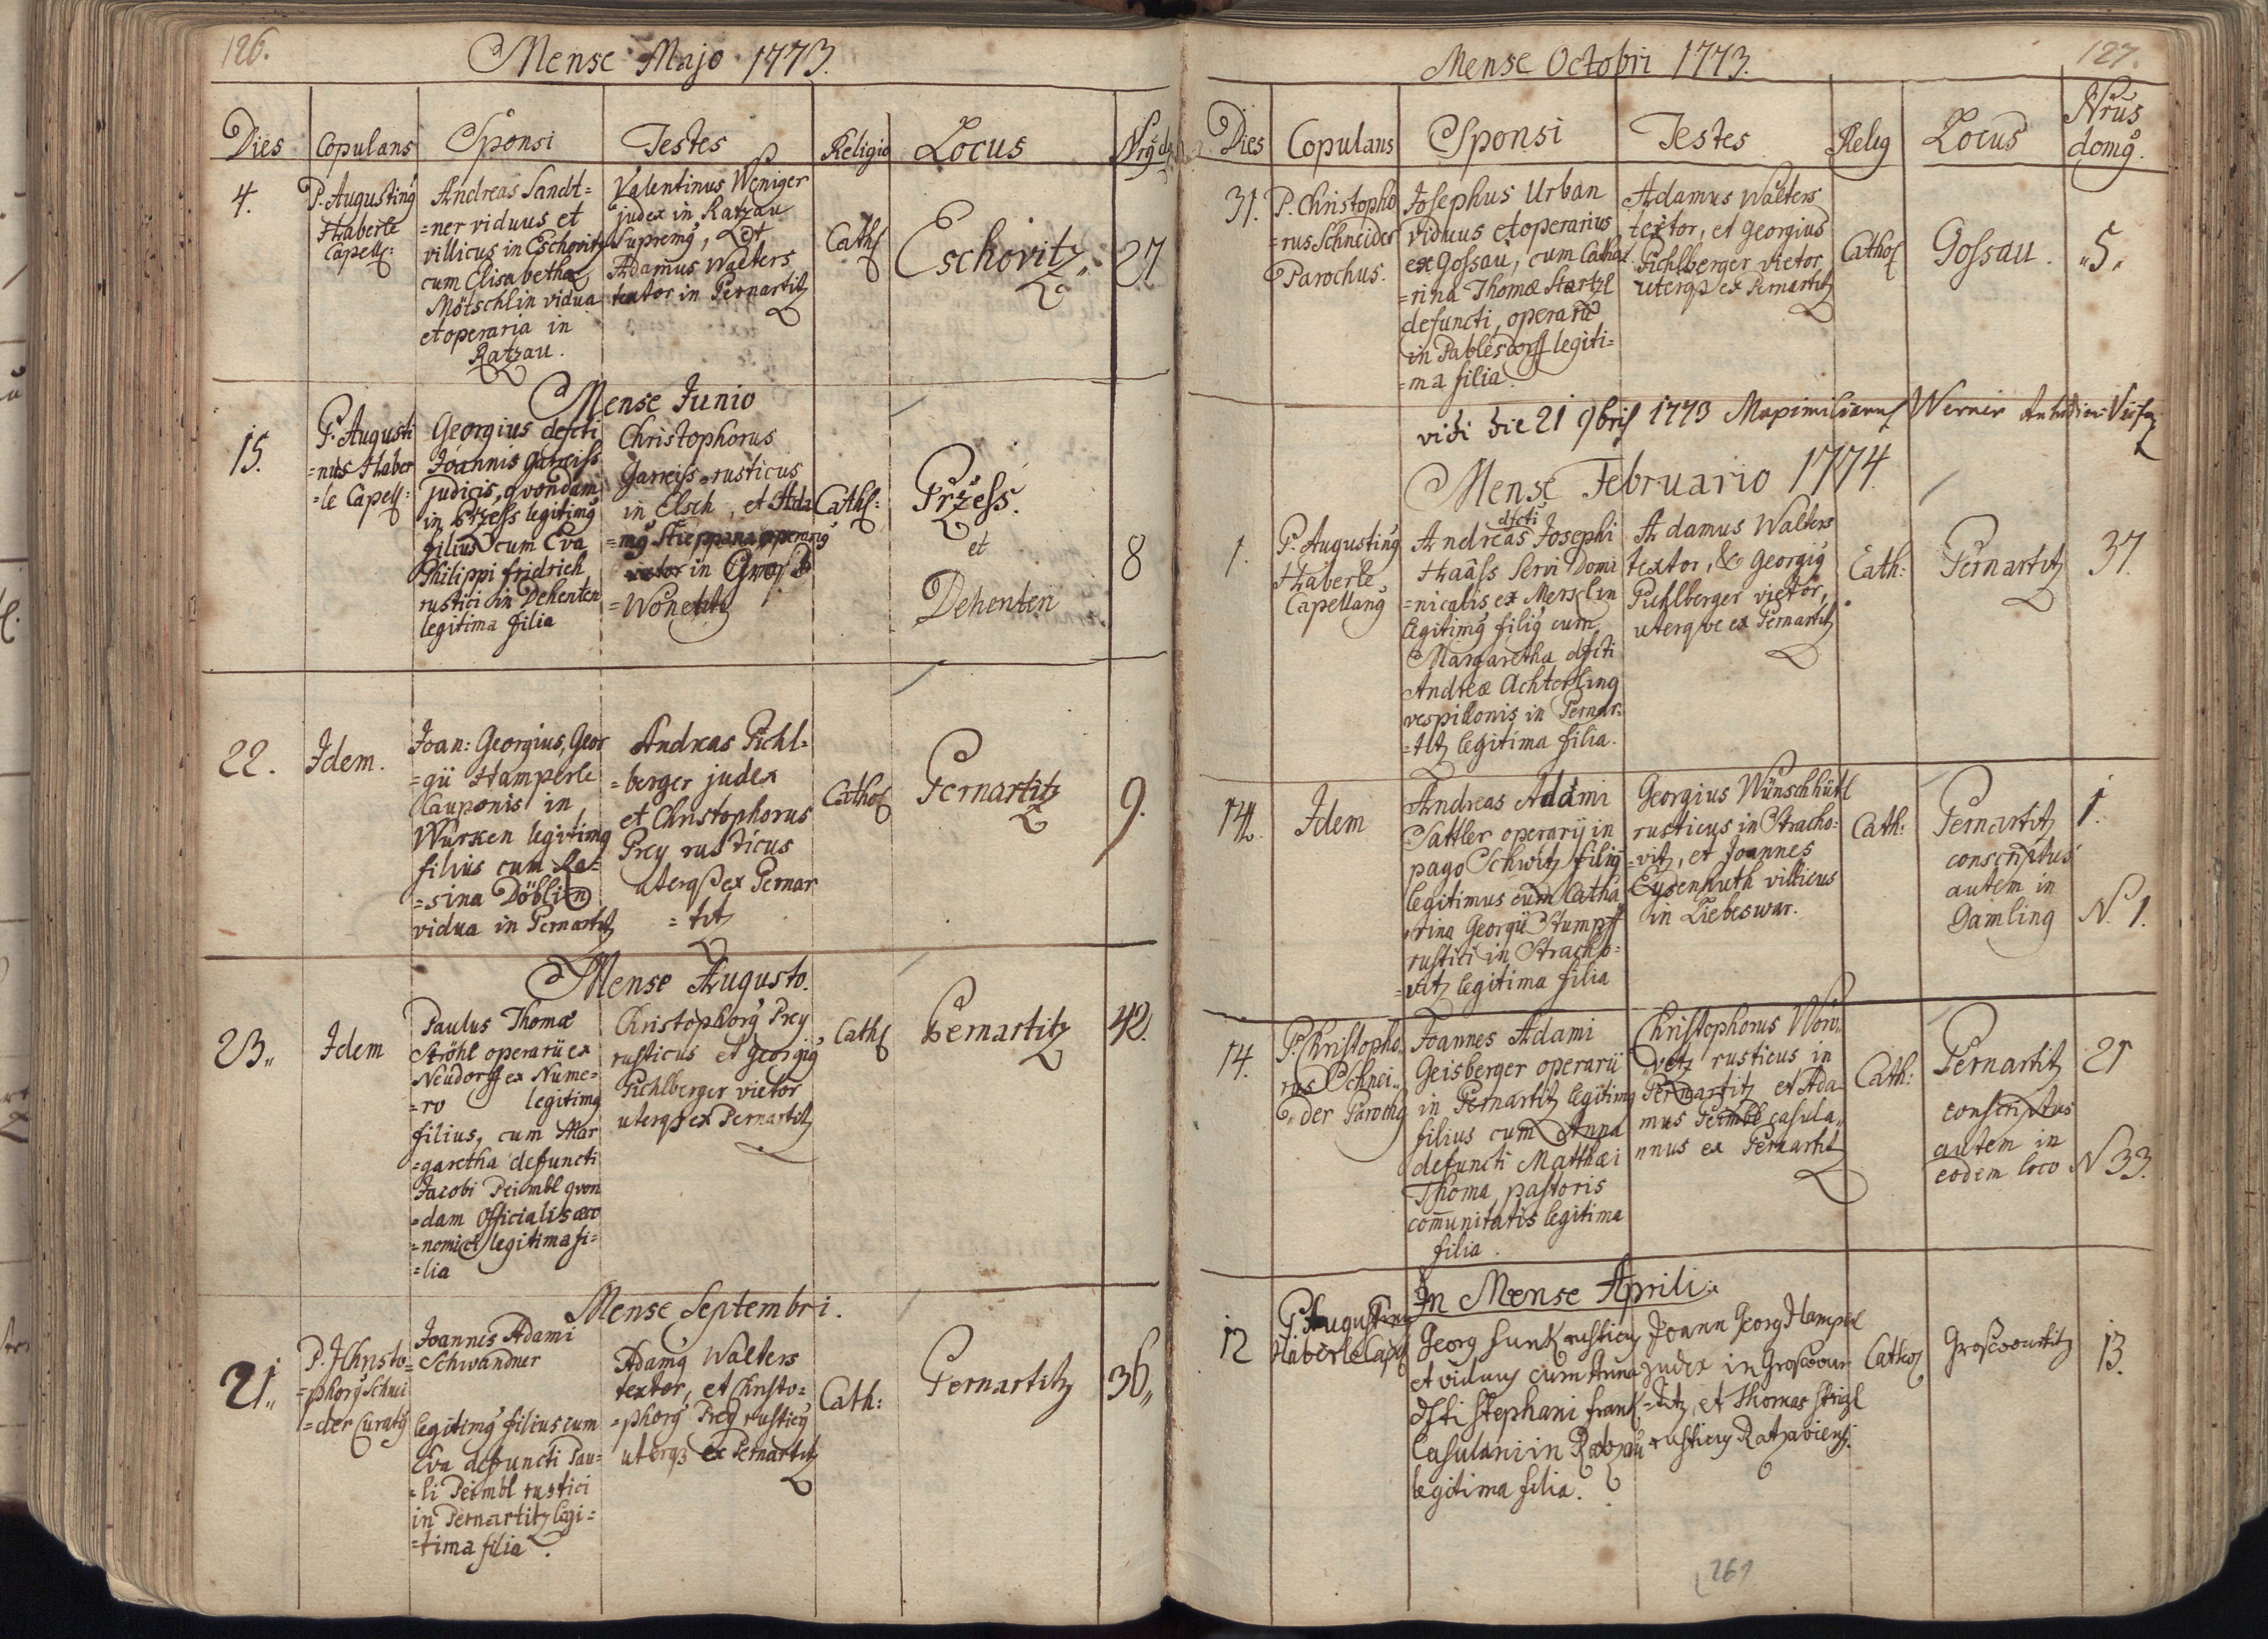 126.
Mense Majo 1773.
Dies Copulans Sponsi Testes Religio Locus
4.
P. Augustinꝰ
Haberle
Capell:
Andreas Sandt=
=ner viduus et
villicus in Eschovitz
cum Elisabetha
Mötschlin vidua
et operaria in
Ratzau.
Valentinus Weniger
judex in Ratzau
Supremꝰ, et
Adamus Walters
textor in Pernartitz
Cath:
Eschovitz
27
Mense Junio
15.
P. Augusti
=nus Haber
=le Capell:
Georgius defcti
Joannis Gareiss
judicis, qvondam
in Przess legitimꝰ
filius cum Eva
Philippi fridrich
rustici in Dehenten
legitima filia
Christophorus
Gareiss rusticus
in Elsch, et Ada
=mꝰ operariꝰ
in
=Wonetitz
Cath:
Przess.
et
Dehenten
8
22.
Idem.
Joan: Georgius, Geor
=gii Hamperle
Cauponis in
Wurken legitimꝰ
filius cum Ro=
=sina Döblin
vidua in Pernartitz
Andreas Pichl=
=berger judex
et Christophorus
Prey rusticus
uterqꝫ ex Pernar
=titz
Cathol
Pernartitz
9.
Mense Augusto.
23.
Idem
Paulus Thomæ
Ströhl operarii ex
Neudorff ex Nume=
=ro legitimꝰ
filius, cum Mar
=garetha defuncti
Jacobi Peimbl qvon
=dam Officialis œco
=nomici legitima fi=
=lia
Christophorꝰ Prey
rusticus et Georgiꝰ
Pichlberger vietor
uterqꝫ ex Pernartitz
Cath
Pernartitz
42.
Mense Septembri.
21.
P. Christo=
=phorꝰ Schnei
=der Curatꝰ
Joannes Adami
Schwandner
legitimꝰ filius cum
Eva defuncti Pau=
=li Peimbl rustici
in Pernartitz legi=
=tima filia.
Adamꝰ Walters
textor, et Christo=
=phorꝰ Prey rusticꝰ
uterqꝫ ex Pernartitz
Cath:
Pernartitz
36
127.
Mense Octobri 1773.
Dies Copulans Sponsi Testes Relig Locus Nrus
domꝰ.
31.
P. Christopho
=rus Schneider
Parochus.
Josephus Urban
viduus et operarius
ex Gossau, cum Catha
=rina Thomæ Startzl
defuncti, operarii
in Pablesdorff legiti=
=ma filia.
Adamus Walters
textor, et Georgius
Pichlberger vietor
uterqꝫ ex Pernartitz
Cathol
Gossau.
„5„
vidi die 21 9bris 1773 Maximilianus Werner
Mense Februario 1774.
1.
P. Augustinꝰ
Haberle
Capellanꝰ
dfcti
Andreas Josephi
Haâss servi Domi
=nicalis ex Mersclin
legitimꝰ filiꝰ cum
Margaretha dfcti
Andreæ Achterling
vespillonis in Pernar=
=titz legitima filia.
Adamus Walters
textor, & Georgiꝰ
Pichlberger vietor,
uterqve ex Pernartitz
Cath:
Pernartitz
37.
14.
Idem
Andreas Adami
Sattler operarij in
pago Schwitz filiꝰ
legitimus cum Catha
rina Georgii Stumpff
rustici in Stracho=
=vitz legitima filia
Georgius Wünschhütl
rusticus in Stracho=
=vitz, et Joannes
Eysenhuth villicus
in Liebeswar.
Cath:
Pernartitz
conscriptus
autem in
Gamling
1.
N. 1.
14.
P. Christopho
rus Schnei„
„der Parochꝰ
Joannes Adami
Geisberger operarii
in Pernartitz legitimꝰ
filius cum Anna
defuncti Matthæi
Thoma pastoris
com̄unitatis legitima
filia.
Christophorus Wor„
„vetz rusticus in
Pernartitz et Ada
mus Peimbl casula„
nnus ex Pernartitz
Cath:
Pernartitz
conscriptus
autem in
eodem loco
21
N 33.
In Mense Aprili.
12
P. Augustinꝰ
Haberle Cap
Georg Hunk rusticus
et viduus cum Anna
dfti Stephani Frank
Casulani in Ratzau
legitima filia.
Joann Georg Hamperl
judex in Groswur
=titz, et Thomas Strigl
rusticus Ratzaviensis.
Cathol
Groswurtitz
13.
269